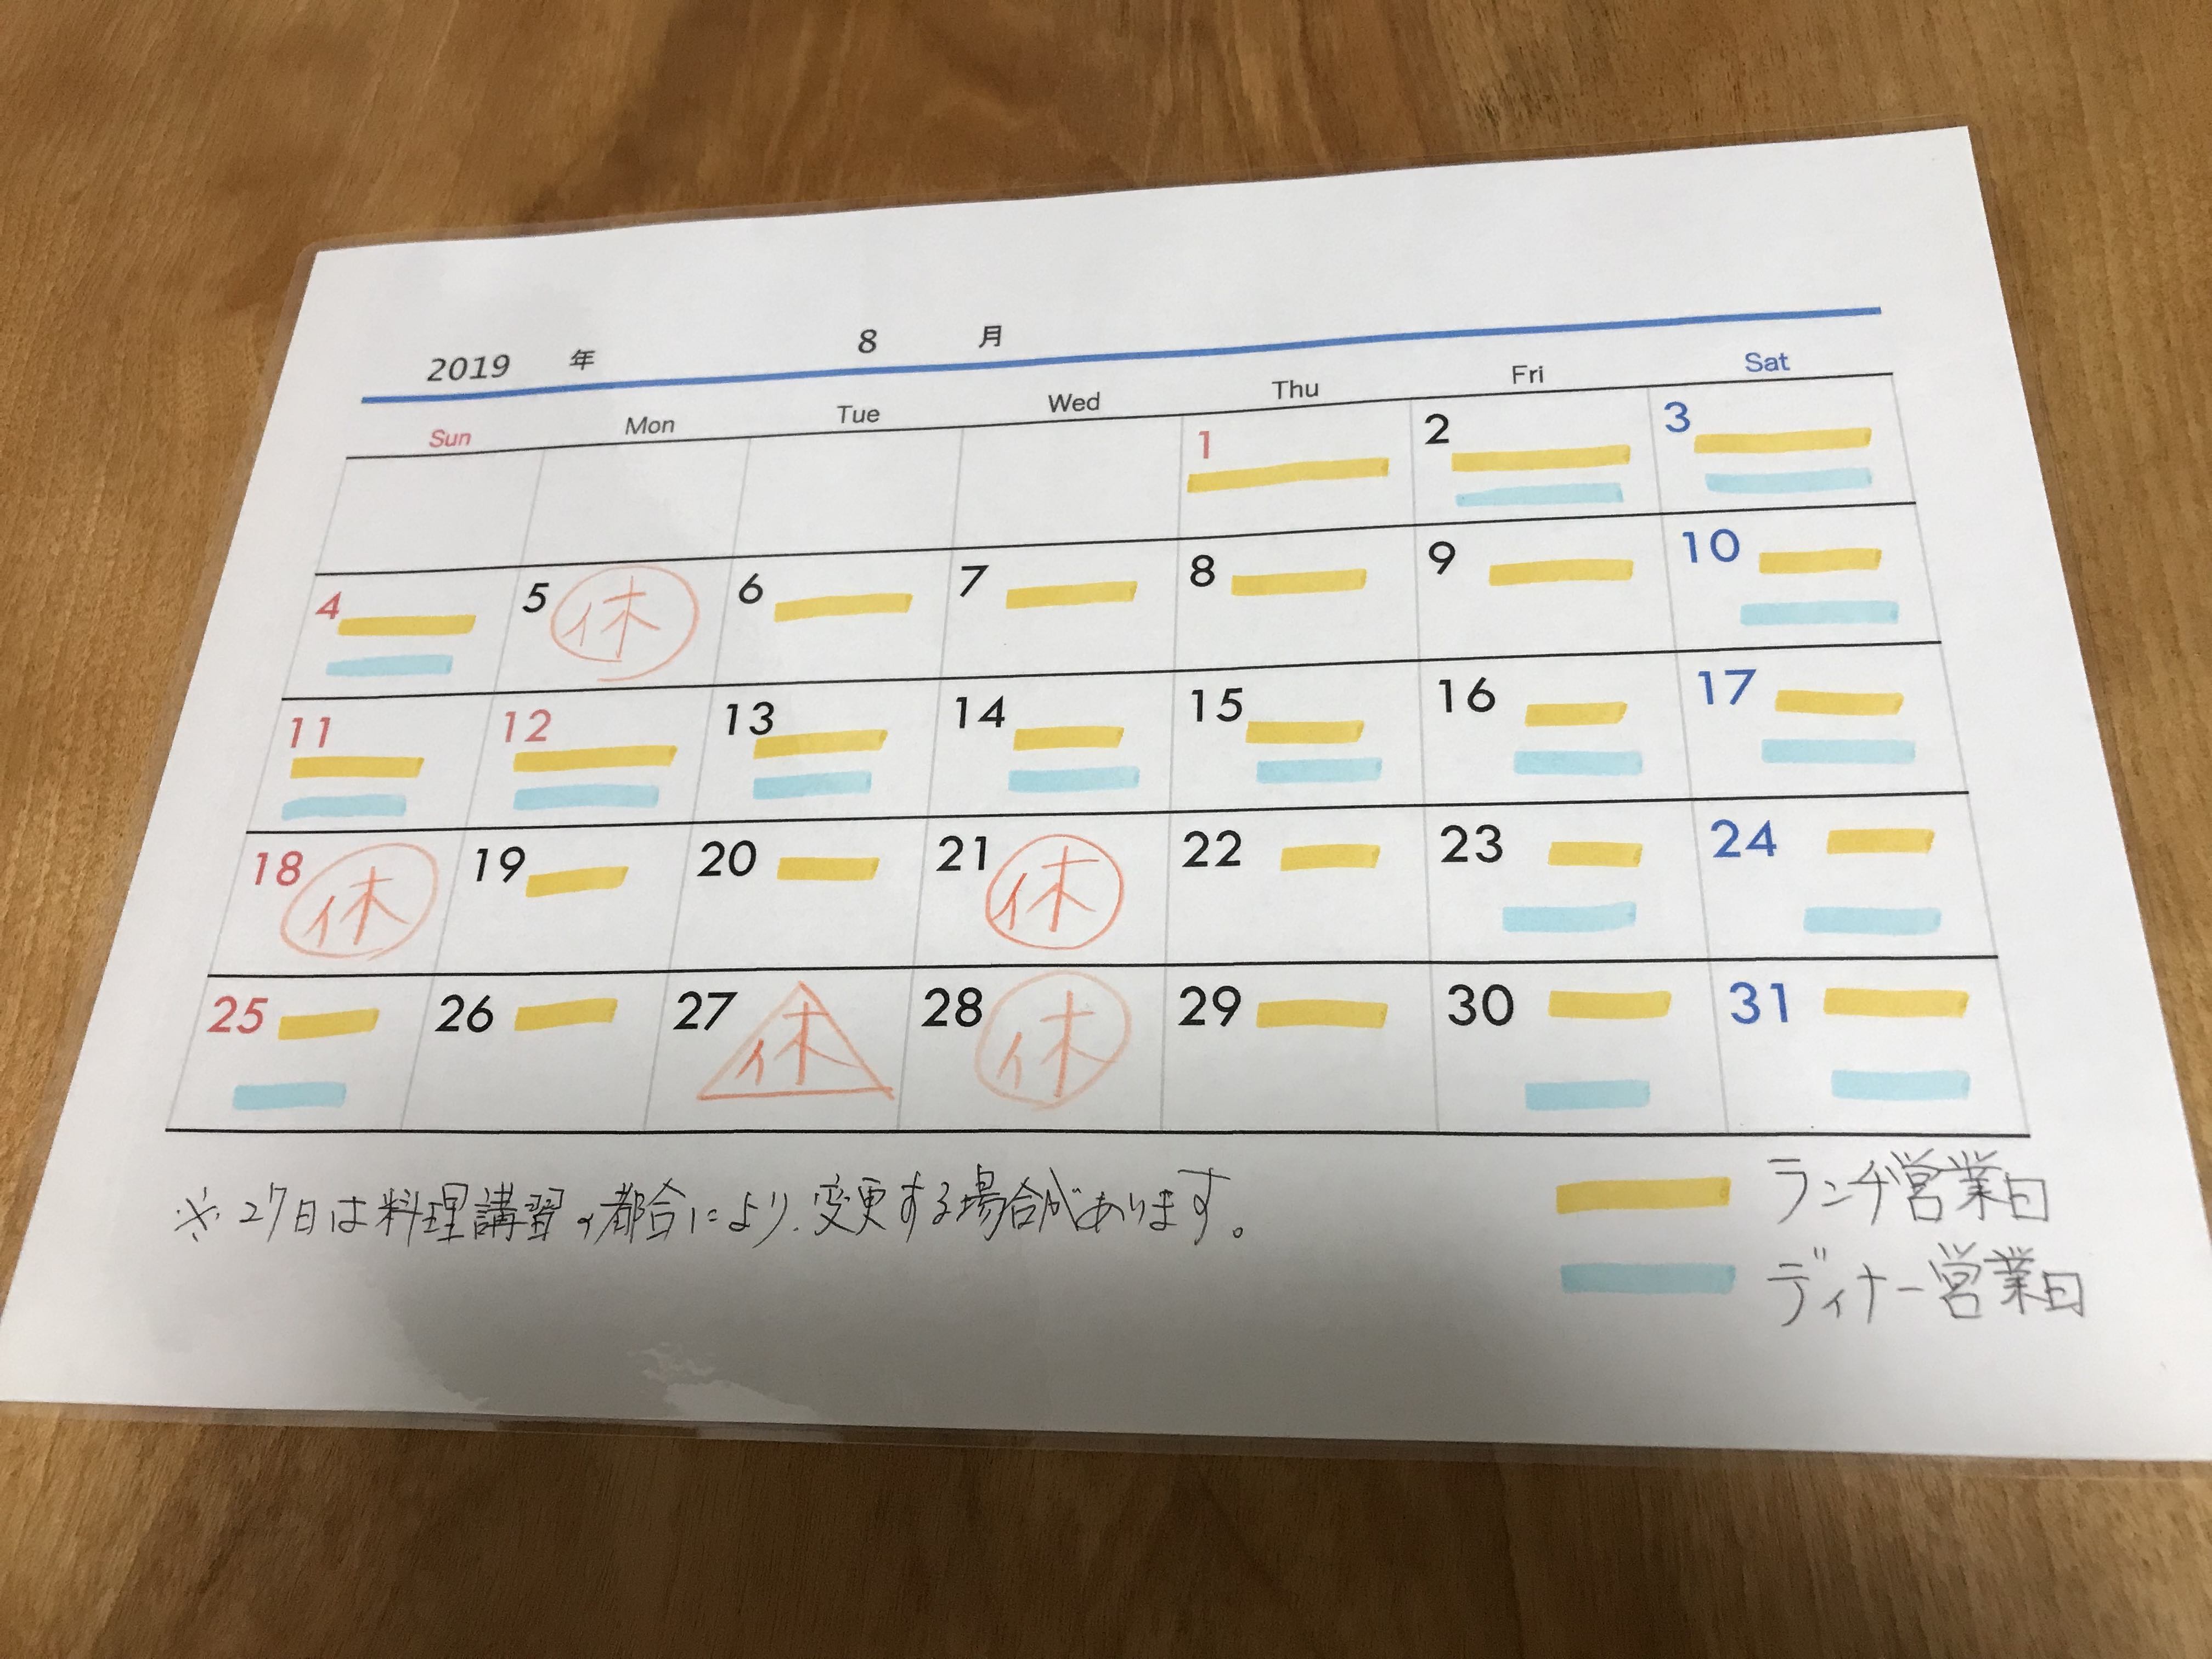 2019 年 8 月
Sun Mon Tue Wed Thu Fri Sat
1 2 3
4 5 休 6 7 8 9 10
11 12 13 14 15 16 17
18 休 19 20 21 休 22 23 24
25 26 27 休 28 休 29 30 31
※27日は料理講習の都合により、変更する場合があります。
ランチ営業日
ディナー営業日